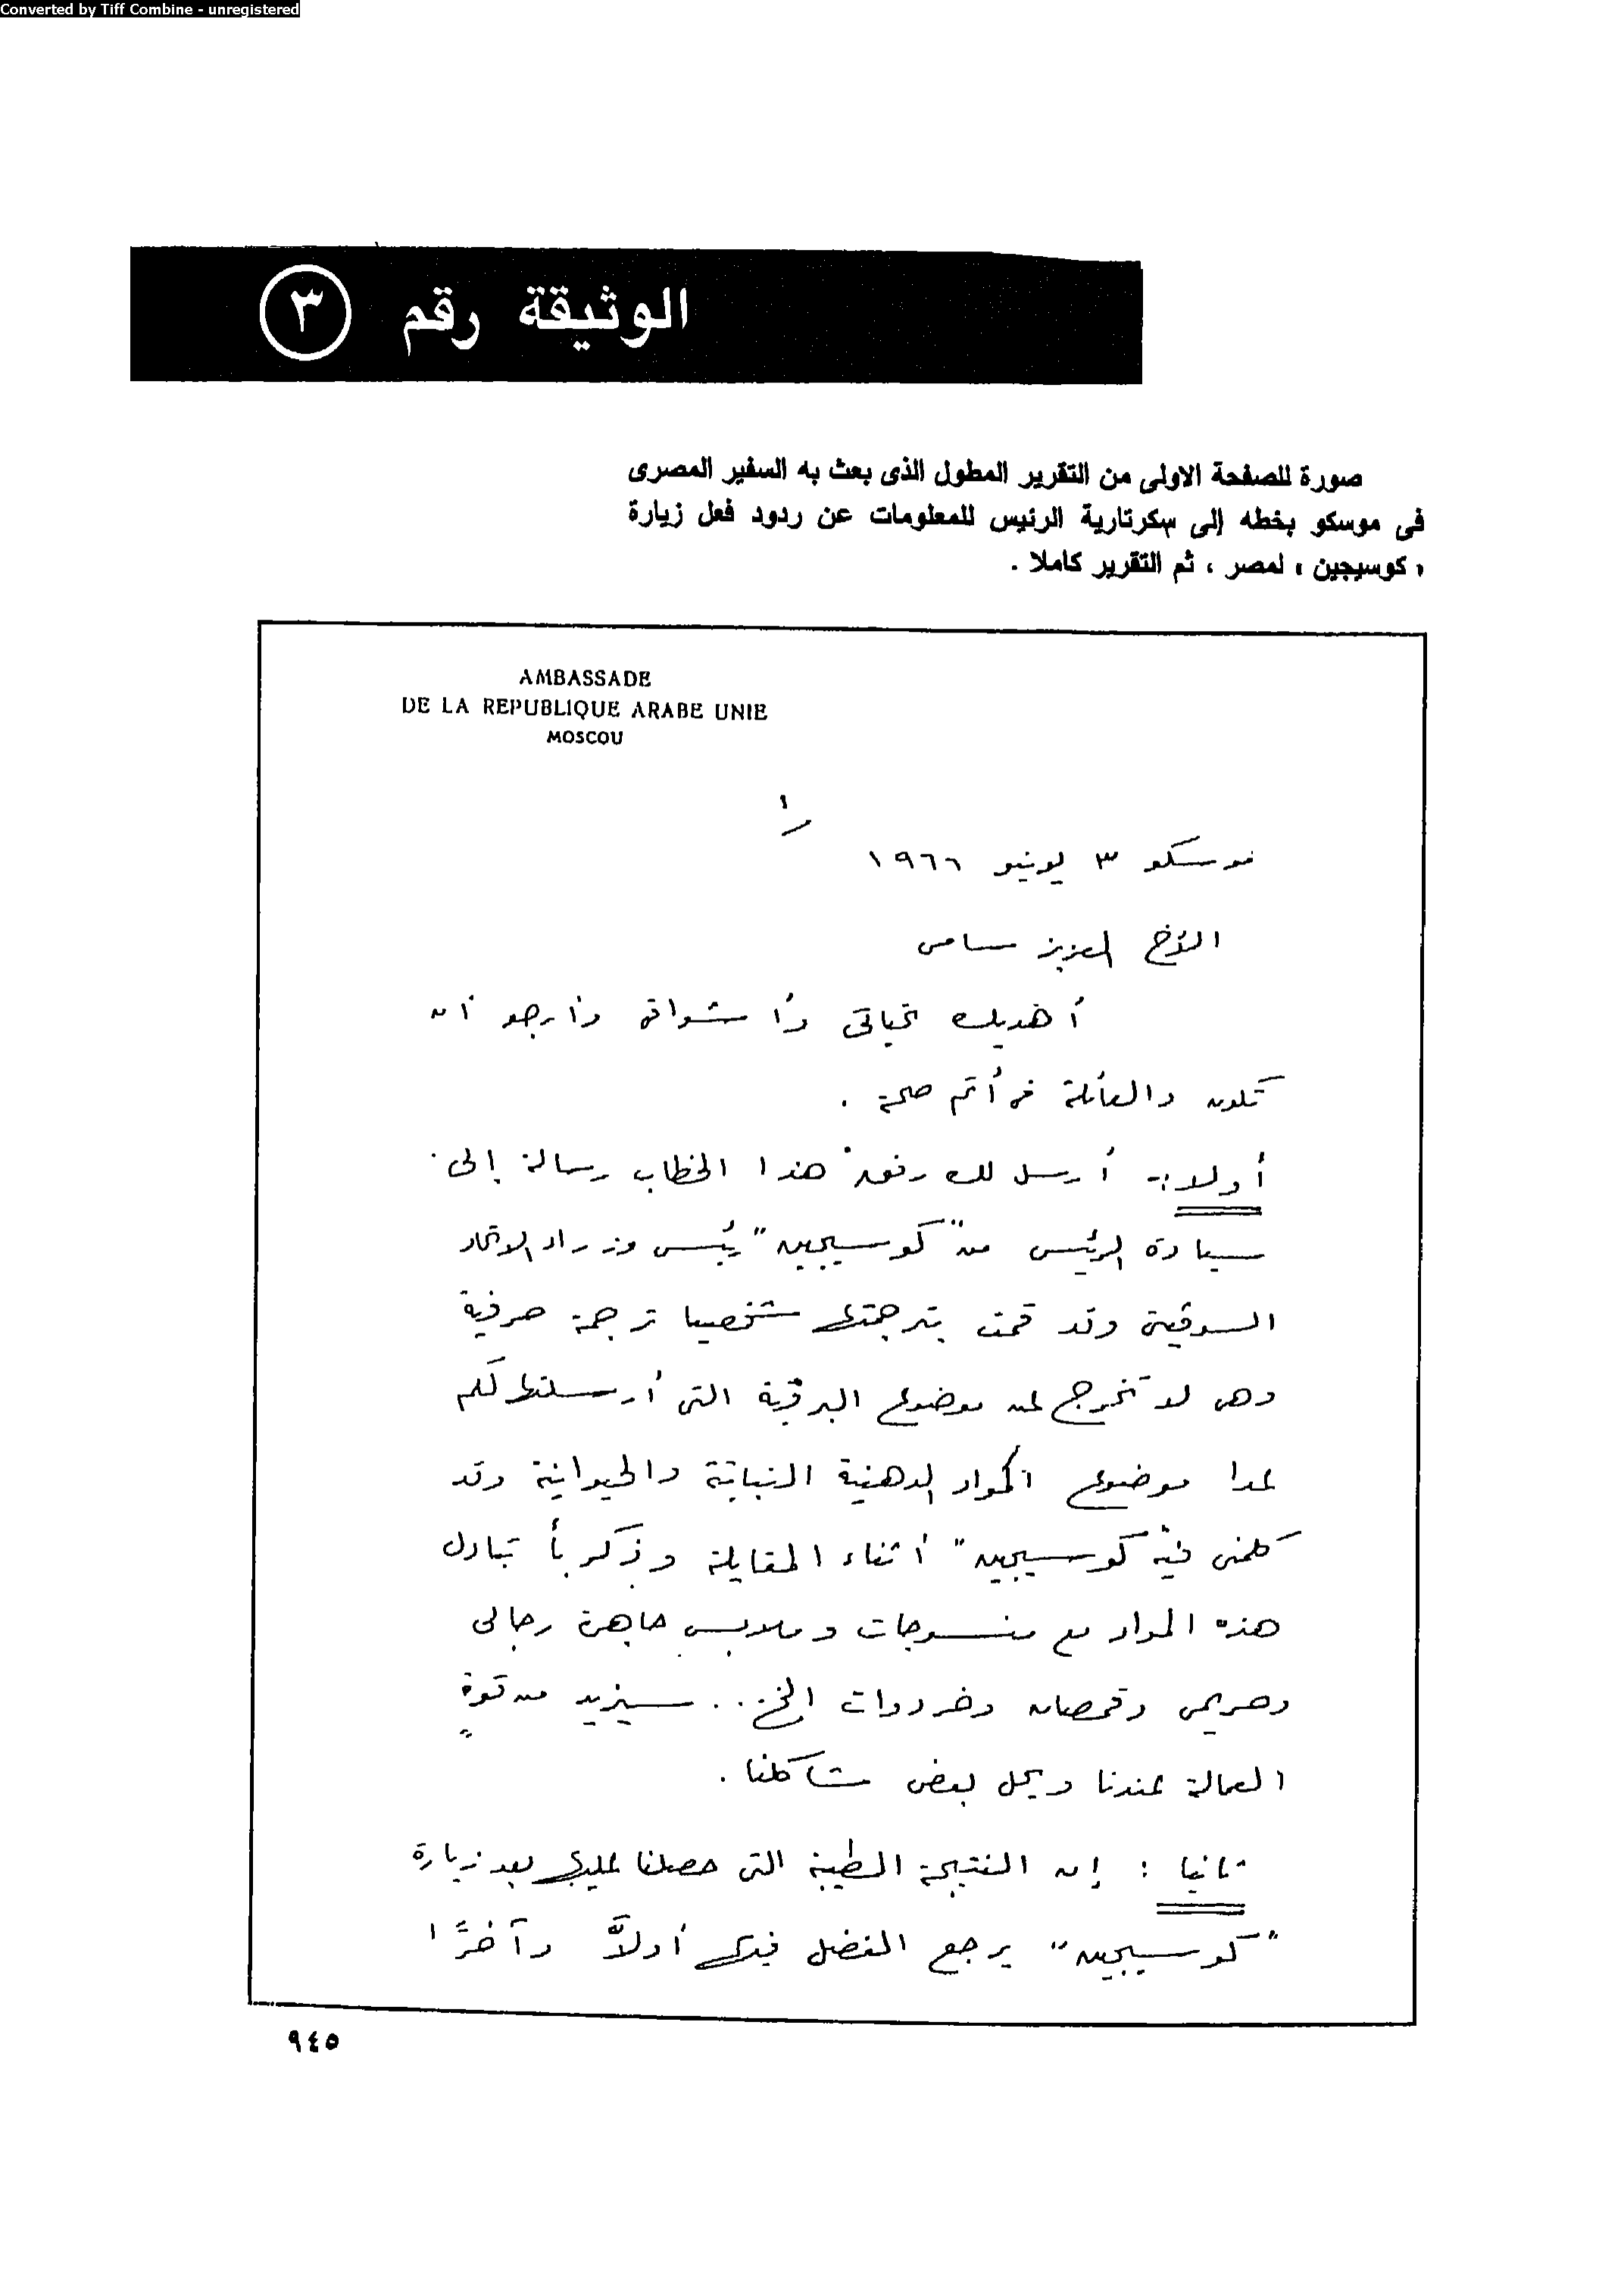 Converted by Tiff Combine - unregistered
الوثيقة رقم ٣
صورة للصفحة الاولى من التقرير المطول الذى بعث به السفير المصرى
فى موسكو بخطه إلى سكرتارية الرئيس للمعلومات عن ردود فعل زيارة
« كوسيجين » لمصر ، ثم التقرير كاملا .
AMBASSADE
DE LA REPUBLIQUE ARABE UNIE
MOSCOU
١
موسكو ٣ يونيو ١٩٦٦
الأخ العزيز سامى
أهديك تحياتى وأشواقى وأرجو أن
تكون والعائلة فى أتم صحة .
أولا :- أرسل لك رفق هذا الخطاب رسالة إلى
سيادة الرئيس من "كوسيجين" رئيس وزراء الاتحاد
السوفيتى وقد قمت بترجمتها شخصيا ترجمة حرفية
وهى لا تخرج عن موضوع البرقية التى أرسلتها لكم
عدا موضوع المواد الدهنية النباتية والحيوانية وقد
كلمنى فيه "كوسيجين" أثناء المقابلة وذكر بأن تبادل
هذه المواد مع منسوجات وملابس جاهزة رجالى
وحريمى وقمصان وخردوات الخ . . سيزيد من قوة
العمالة عندنا ويحل بعض مشاكلنا .
ثانيا : إن النتيجة الطيبة التى حصلنا عليها بعد زيارة
"كوسيجين" يرجع الفضل فيها أولاً وآخرًا
٩٤٥